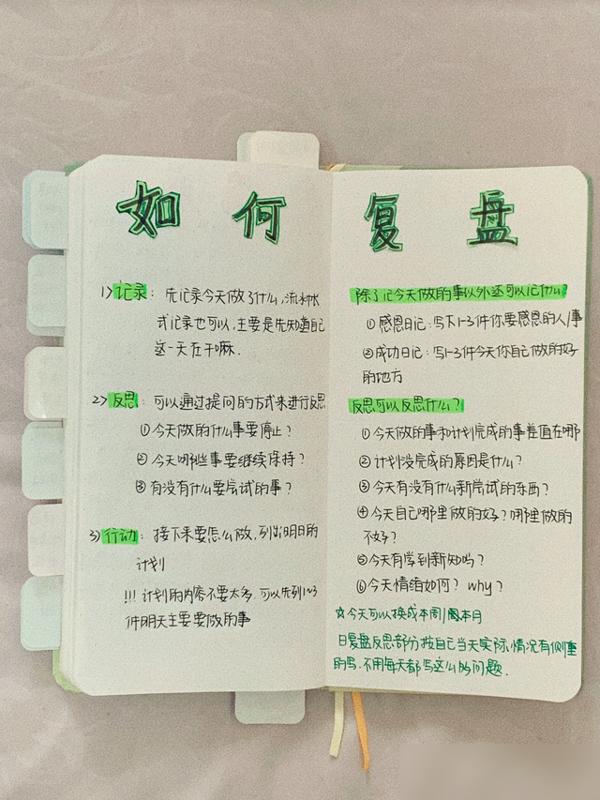 如何复盘
1) 记录：先记录今天做了什么，流水
式记录也可以，主要是先知道自己
这一天在干嘛.
2) 反思：可以通过提问的方式来进行反思
① 今天做的什么事要停止？
② 今天哪些事要继续保持？
③ 有没有什么要尝试的事？
3) 行动：接下来要怎么做，列出明日的
计划
!!! 计划的内容不要太多.可以先列1~3
件明天主要要做的事
除了记今天做的事以外还可以记什么？
① 感恩日记：写下1-3件你要感恩的人/事
② 成功日记：写1-3件今天你自己做的好
的地方
反思可以反思什么？
① 今天做的事和计划完成的事差值在哪
② 计划没完成的原因是什么？
③ 今天有没有什么新尝试的东西？
④ 今天自己哪里做的好？哪里做的
不好？
⑤ 今天有学到新知吗？
⑥ 今天情绪如何？why？
☆今天可以换成本周/本月
日复盘反思部分按自己当天实际情况有侧重
的写.不用每天都写这么多的问题.